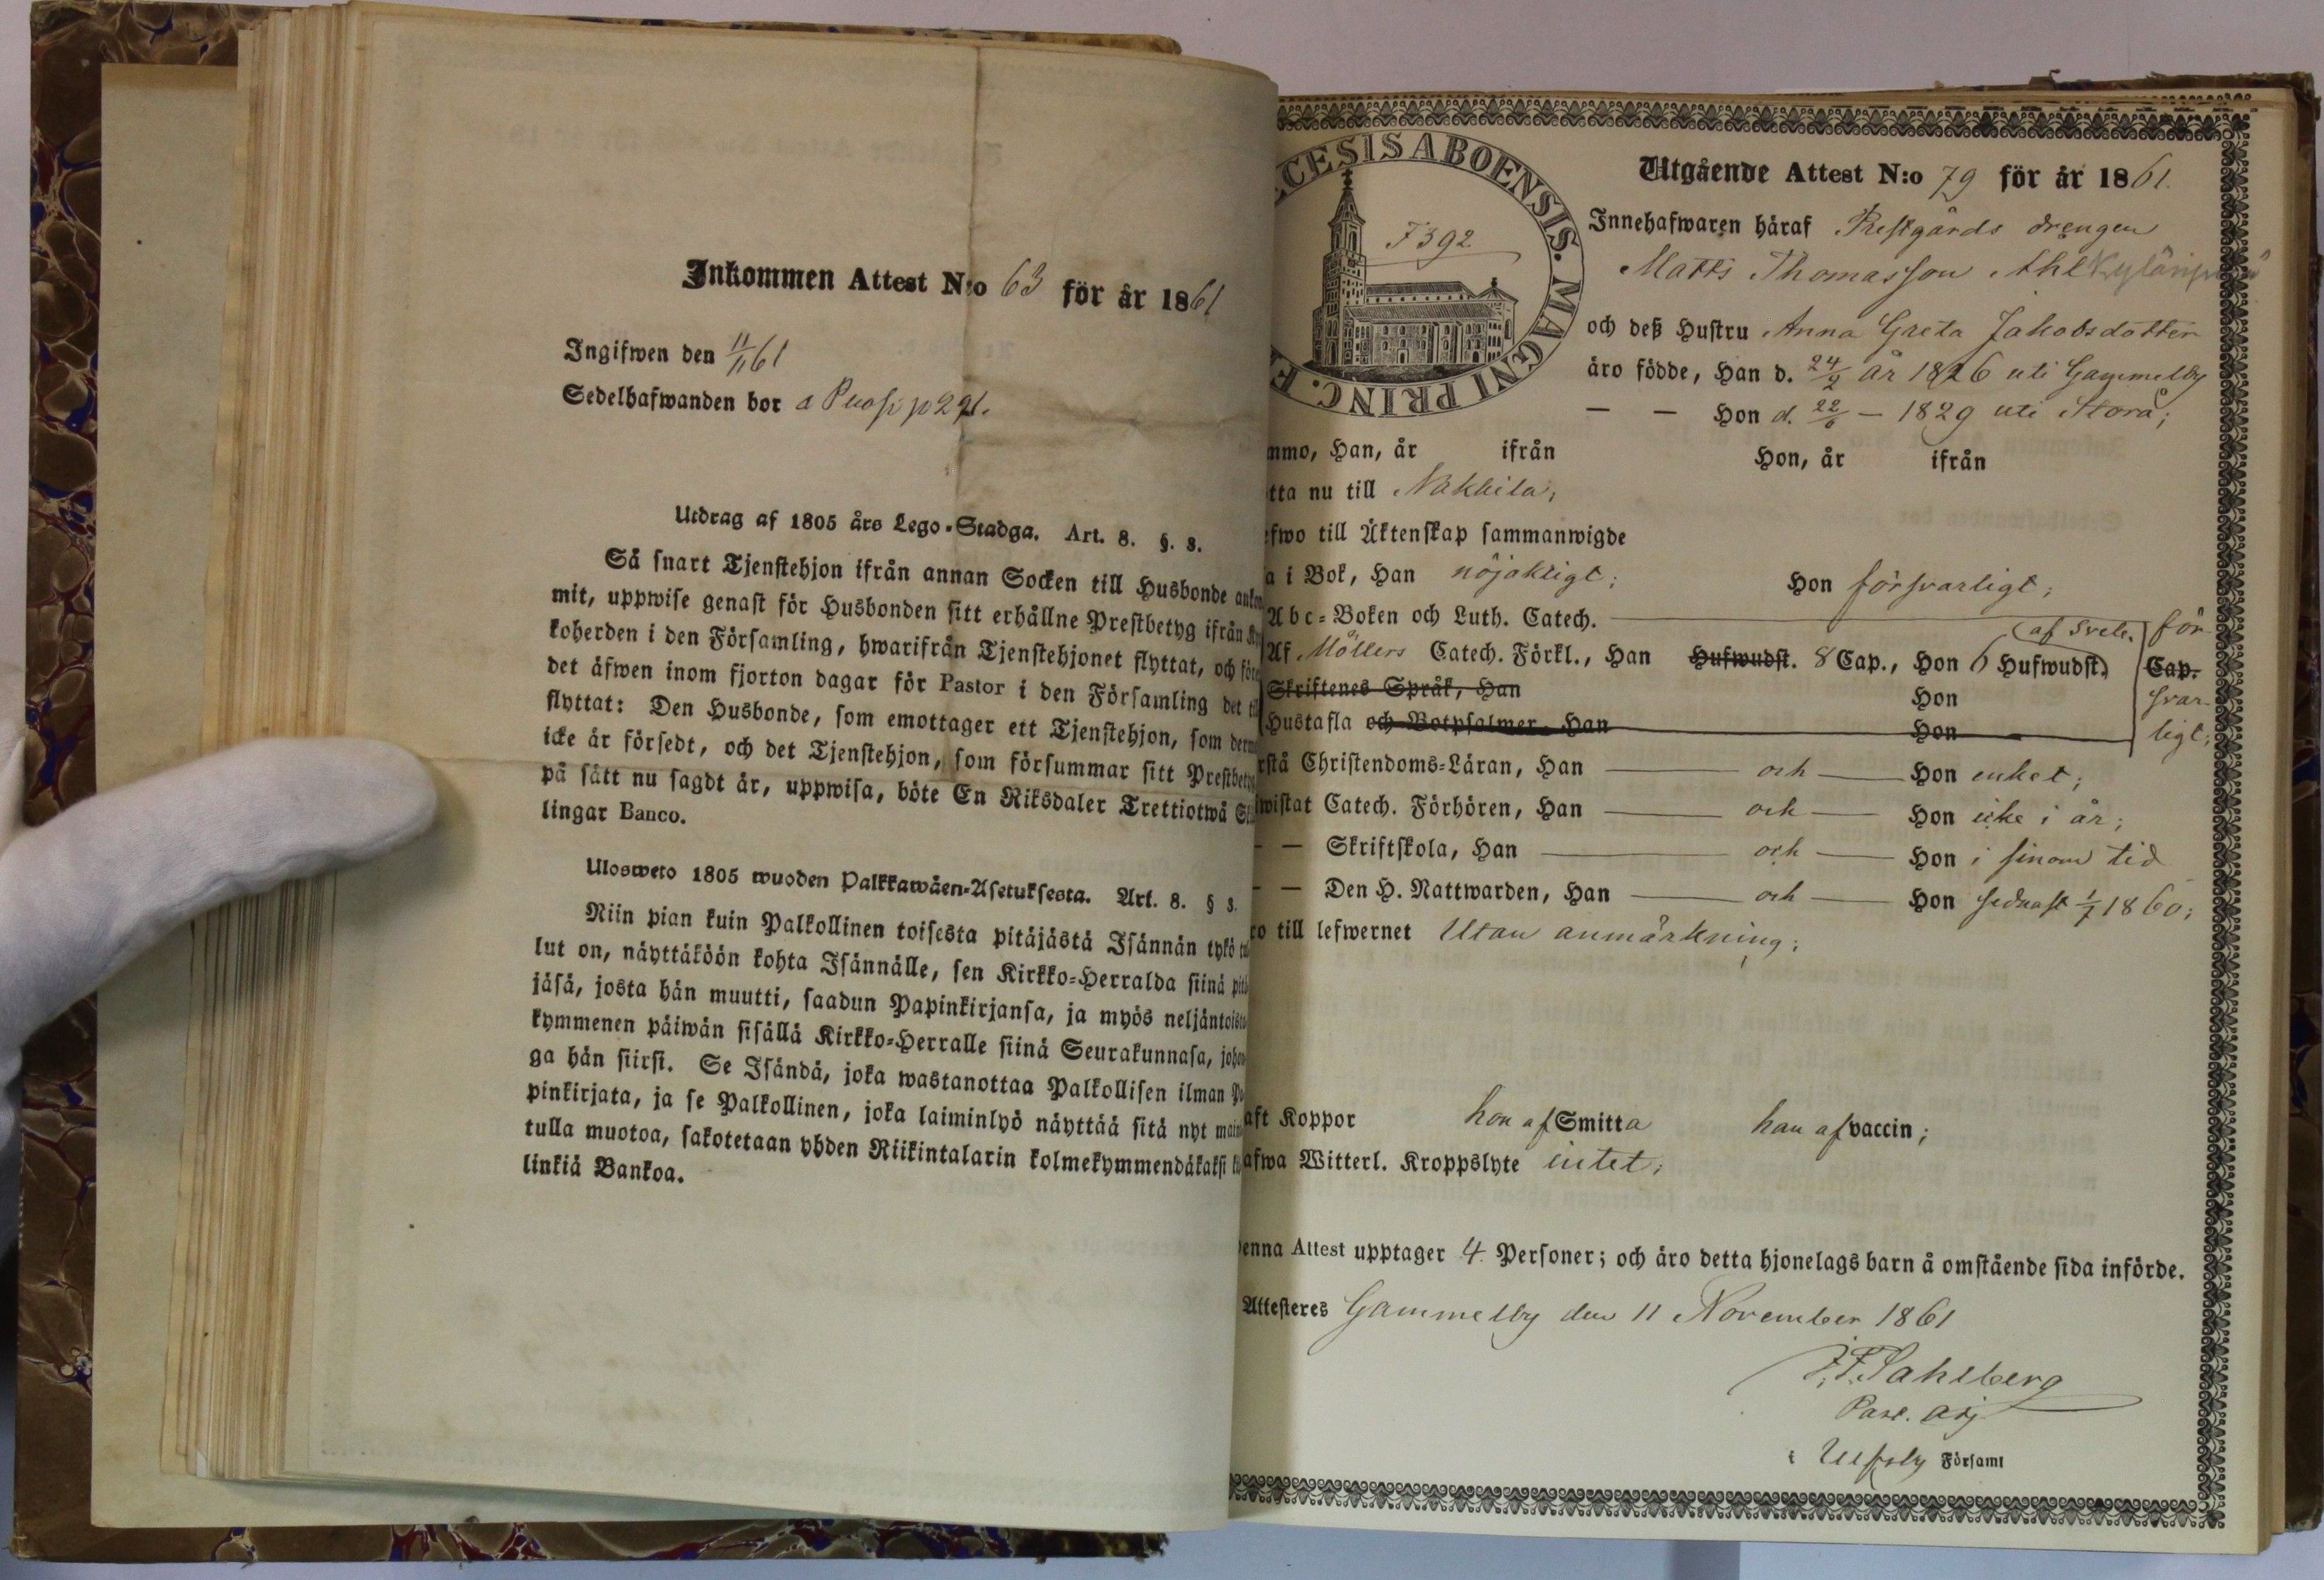 Inkommen Attest N:o 63 för år 1861
Ingifwen den 11/11 61
Sedelhafwanden bor a
Utdrag af 1805 års Lego-Stadga. Art. 8. §. 8.
Så snart Tjenstehjon ifrån annan Socken till Husbonde
mit, uppwise genast för Husbonden sitt erhållne Prestbetyg ifrån
koherden i den Församling, hwarifrån Tjenstehjonet flyttat, och
det äfwen inom fjorton dagar för Pastor i den Församling det
flyttat: Den Husbonde, som emottager ett Tjenstehjon, som
icke är försedt, och det Tjenstehjon, som försummar sitt Prestbetyg
på sätt nu sagdt är, uppwisa, böte En Riksdaler Trettiotwå
lingar Banco.
Ulosweto 1805 wuoden Palkkawäen-Asetuksesta. Art. 8. § 8.
Niin pian kuin Palkollinen toisesta pitäjästä Isännän tykö
lut on, näyttäköön kohta Isännälle, sen Kirkko-Herralda siinä
jäsä, josta hän muutti, saadun Papinkirjansa, ja myös neljäntoista
kymmenen päiwän sisällä Kirkko-Herralle siinä Seurakunnasa,
ga hän siirsi. Se Isändä, joka wastanottaa Palkollisen ilman
pinkirjata, ja se Palkollinen, joka laiminlyö näyttää sitä nyt
tulla muotoa, sakotetaan yhden Riikintalarin kolmekymmendäkaksi
linkiä Bankoa.
CESIS ABOENSIS. MAGNI PRINC. F
J 392
Utgående Attest N:o 79 för år 1861.
Innehafwaren häraf Prestgårds drengen
Matts Thomasson
och deß Hustru Anna Greta Jakobsdotter
äro födde, Han d. 24/2 år 1826 uti Gammelby
— — Hon d. 22/6 — 1829 uti Storå;
mmo, Han, år ifrån Hon, år ifrån
tta nu till Nakkila;
efwo till Äktenskap sammanwigde
a i Bok, Han nöjaktigt; Hon försvarligt;
Abc-Boken och Luth. Catech.
Af Möllers Catech. Förkl., Han Hufwudst. 8 Cap., Hon 6 Hufwudst. (af Sveb.) Cap. för-
Skriftenes Språk, Han Hon svar-
Hustafla och Botpsalmer, Han Hon ligt;
rstå Christendoms-Läran, Han — och — Hon enket;
wistat Catech. Förhören, Han — och — Hon icke i år;
— — Skriftskola, Han — och — Hon i sinom tid
— — Den H. Nattwarden, Han — och — Hon sednast 1/7 1860;
ro till lefwernet Utan anmärkning;
aft Koppor hon af Smitta han af vaccin;
afwa Witterl. Kroppslyte intet;
enna Attest upptager 4 Personer; och äro detta hjonelags barn å omstående sida införde.
Attesteres Gammelby den 11 November 1861
Sahlberg
Past. adj
i Ulfsby Församl